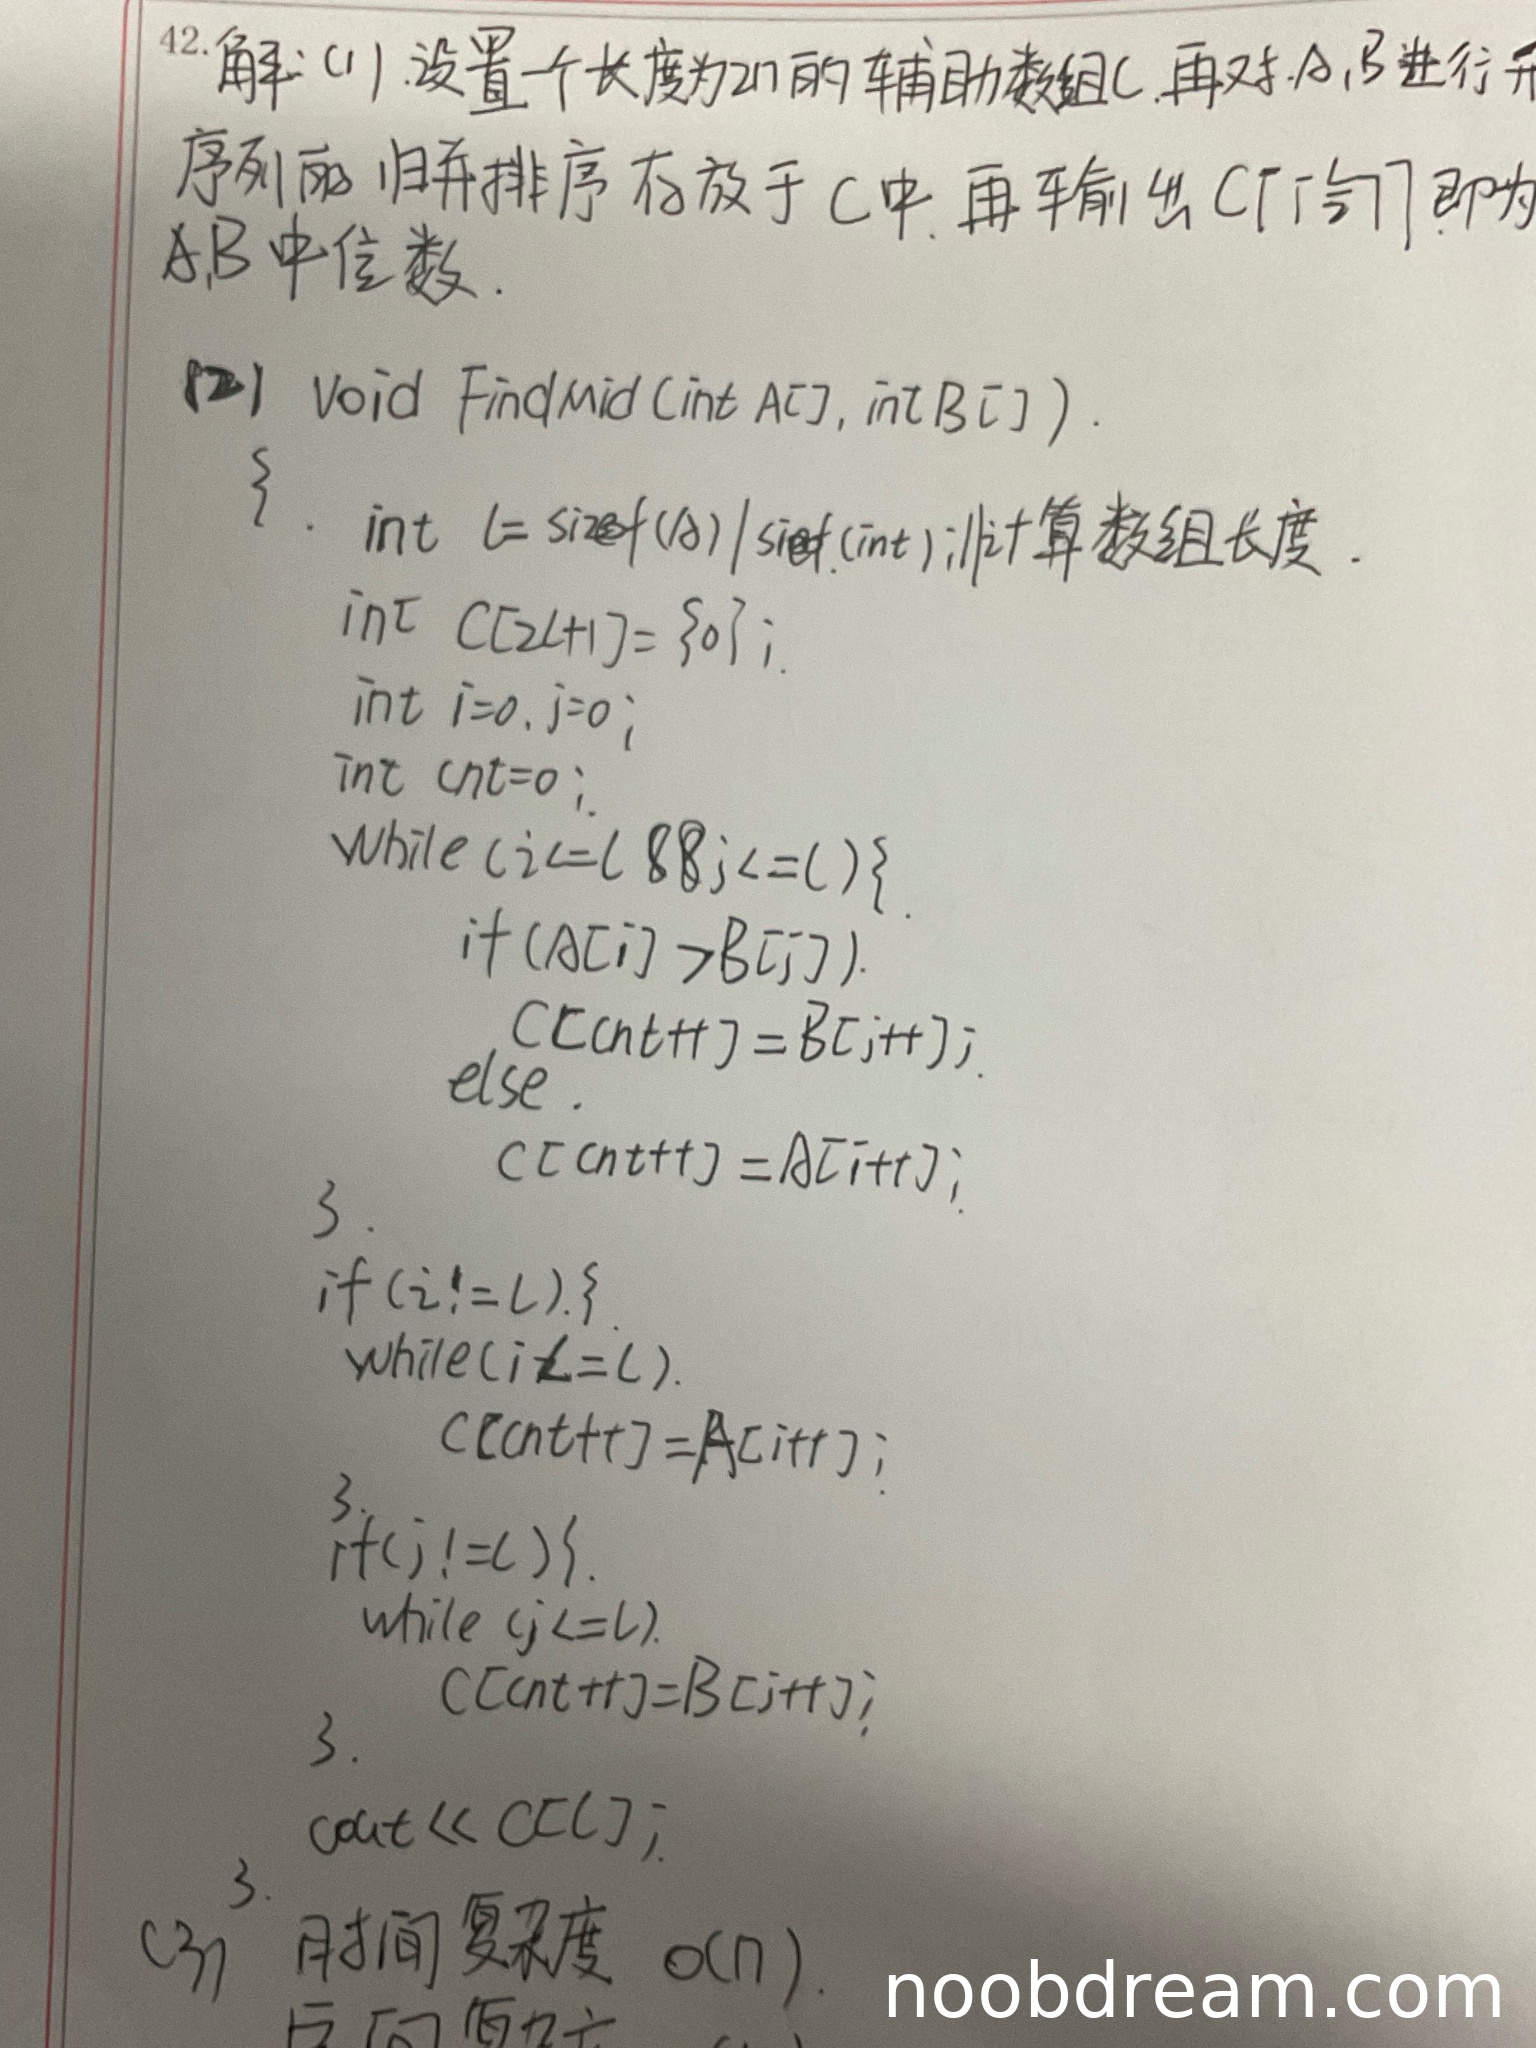 42. 解:(1).设置一个长度为2n的辅助数组C.再对.A,B进行
序列的归并排序存放于C中.再输出C[⌈⌉]即为
A,B中位数.
(2) void FindMid(int A[], int B[]).
{. int L=sizeof(A)/sizeof.(int);//计算数组长度.
int C[2L+1]={0};
int i=0.j=0;
int cnt=0;
while(i<=L&&j<=L){.
if(A[i]>B[j]).
C[cnt++]=B[j++];
else.
C[cnt++]=A[i++];
}.
if(i!=L).{
while(i<=L).
C[cnt++]=A[i++];
}.
if(j!=L){.
while(j<=L).
C[cnt++]=B[j++];
}.
cout<<C[L];
}.
(3) 时间复杂度 O(n).
noobdream.com